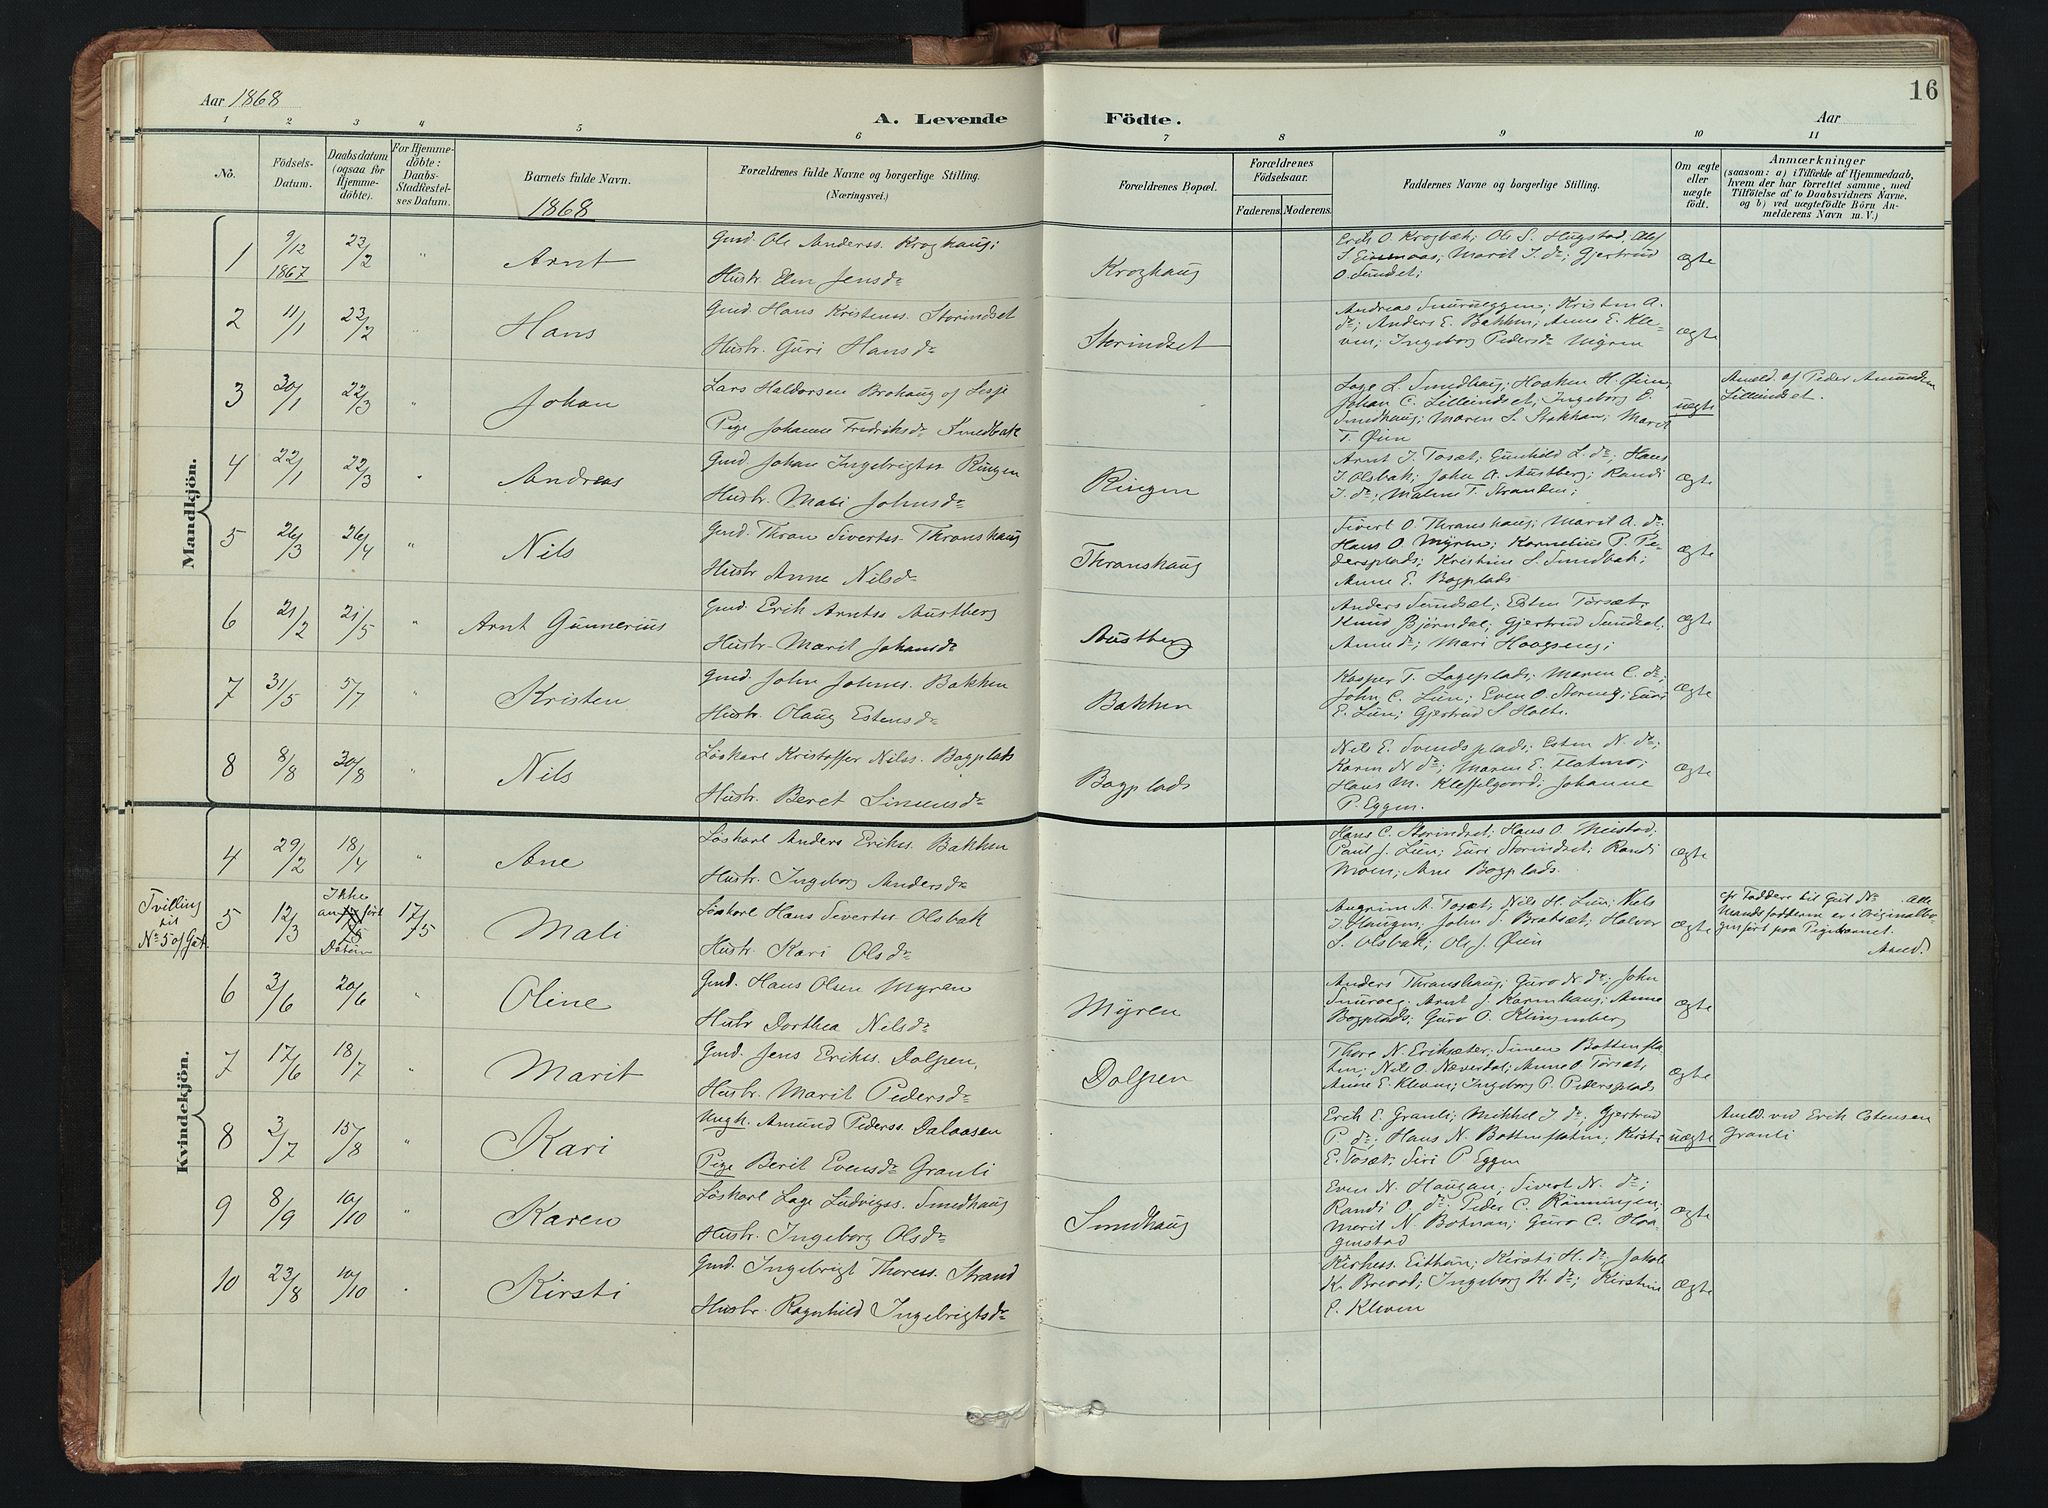 Aar 1868
A. Levende Födte.
Aar
16
1 2 3 4 5 6 7 8 9 10 11
No.
Födsels-Datum.
Daabsdatum (ogsaa for Hjemme-döbte).
For Hjemme-döbte: Daabs-Stadfæstel-ses Datum.
Barnets fulde Navn.
1868
Forældrenes fulde Navne og borgerlige Stilling.
(Næringsvei.)
Forældrenes Bopæl.
Forældrenes Födselsaar.
Faderens. Moderens.
Faddernes Navne og borgerlige Stilling.
Om ægte eller uægte födt.
Anmærkninger
(saasom: a) i Tilfælde af Hjemmedaab,
hvem der har forrettet samme, med
Tilföielse af to Daabsvidners Navne,
og b) ved uægtefödte Börn An-
melderens Navn m. V.)
Mandkjön.
1 9/12 1867 23/2 " Arnt
Gmd. Ole Anderss. Kroghaug;
Hustr. Elen Jensdr
Kroghaug
Erik O. Krogbæk; Ole S. Hugstad, Olef
S. aas; Marit J. dr; Gjertrud
O. Sundset;
ægte
2 11/1 23/2 " Hans
Gmd. Hans Kristenss. Storindset
Hustr. Guri Hansdr
Storindset
Andreas Snurueggen; Kristen A.
dr; Anders E. Bakken; Anne E. Kle-
ven; Ingeborg Pedersdr Myren
ægte
3 30/1 22/3 " Johan
Lars Haldorsen Brohaug of Lesje
Pige Johanne Fredriksdr Smedbak
Lage L. Smedhaug; Haaken H. Øien,
Johan C. Lilleindset; Ingeborg O.
Smedhaug; Maren S. Stokkan; Marit
T. Øien
uægte
Anmeld. af Peder Amundsen
Lilleindset.
4 22/1 22/3 " Andreas
Gmd. Johan Ingebrigtss. Ringen
Hustr. Mali Johnsdr
Ringen
Arnt J. Tosæt; Gunhild L. dr; Hans
J. Olsbak; John A. Austberg; Randi
J. dr; Malene T. Stranden;
ægte
5 26/3 26/4 " Nils
Gmd. Thran Sivertss. Thranshaug
Hustr Anne Nilsdr
Thranshaug
Sivert O. Thranshaug; Marit A. dr.
Hans O. Myren; Kornelius P. Pe-
dersplads; Kristine S. Smedbak;
Anne E. Bagplads
ægte
6 21/2 21/5 " Arnt Gunnerius
Gmd. Erik Arntss Austberg
Hustr. Marit Johansdr
Austberg
Anders Sundset; Esten Torsæt,
Knud Bjørndal; Gjertrud Sundset,
Anne dr; Mari Haagseng;
ægte
7 31/5 5/7 " Kristen
Gmd. John Johnss. Bakken
Hustr. Olaug Estensdr
Bakken
Kasper T. Lageplads; Maren C. dr;
John C. Lien; Even O. Storeng; Guri
E. Lien; Gjertrud S. Holte.
ægte
8 8/8 30/8 " Nils
Løskarl Kristoffer Nilss. Bagplads
Hustr. Beret Simensdr
Bagplads
Nils E. Svendsplads; Esten N. dr;
Karen N dr; Maren E. Flatmo;
Hans M. Kleffelgaard; Johanne
P. Eggen.
ægte
Kvindekjön.
4 29/2 18/4 " Ane
Løskarl Anders Erikss. Bakken
Hustr. Ingeborg Andersdr
Hans C. Storindset; Hans O. Meistad;
Paul J. Lien; Guri Storindset; Randi
Moen; Ane Bagplads.
ægte
Tvilling til No 5 of Gut.
5 12/3 Ikke anført Datum 17/5 Mali
Løskarl Hans Sivertss. Olsbak
Hustr. Kari Olsdr
Angrim A. Tosæt; Nils H. Lien; Nels
J. Haugen; John S. Bratsæt; Halvor
S. Olsbak; Ole J. Øien
ægte
cfr Faddere til Gut No . Alle
Mandsfadderne er i Originalbo-
gen ført paa Pigebarnet.
Anmeld.
6 3/6 20/6 " Oline
Gmd. Hans Olsen Myren
Hustr Dorthea Nelsdr
Myren
Anders Thranshaug; Guro N. dr; John
Snuroeg; Arnt J. Karenhaug; Anne
Bagplads; Guro O. Klingenberg
ægte
7 17/6 18/7 Marit
Gmd. Jens Erikss. Dolpen,
Hustr. Marit Pedersdr
Dolpen
Thore N. Eriksæter; Simen Bottensla-
ten; Nils O. Næverdal; Anne O. Torsæt,
Anne E. Kleven; Ingeborg P. Pedersplads
ægte
8 3/7 15/8 " Kari
Ungk. Amund Pederss. Dalaasen
Pige Berit Evensdr Granli
Erik E. Granli; Mikkel J. dr; Gjertrud
P. dr; Hans N. Bottenflaten; Kirsti
E. Tosæt; Siri P. Eggen
uægte
Anmld. ved Erik Estensen
Granli
9 8/9 10/10 " Karen
Løskarl Lage Ludvigss. Smedhaug
Hustr. Ingeborg Olsdr
Smedhaug
Even N. Haugan; Sivert N. dr;
Randi O. dr; Peder C. Rønningen;
Marit N. Botnan; Guro C. Haa-
genstad
ægte
10 23/8 10/10 Kirsti
Gmd. Ingebrigt Thoress. Strand
Hustr. Ragnhild Ingebrigtsdr
Eithun; Kirsti H. dr; Jakob
K. Brevad; Ingeborg K. dr; Kirstine
E. Kleven
ægte